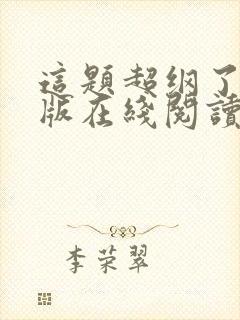 這題超纲了
版在綫閱讀
李荣翠